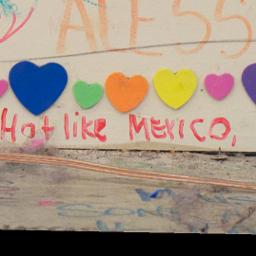 ALESS
Hot like MEXICO,